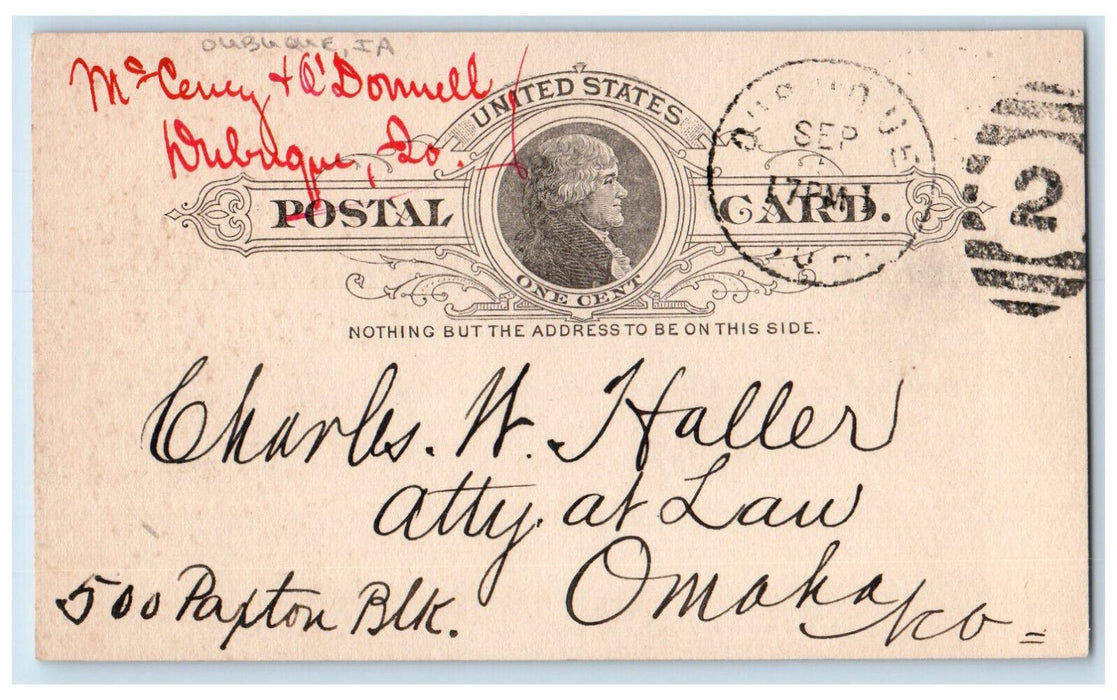 DUBUQUE, IA
McCeney & O'Donnell
Dubuque, Io.
UNITED STATES
POSTAL CARD.
ONE CENT
NOTHING BUT THE ADDRESS TO BE ON THIS SIDE.
DUBUQUE
SEP
7 PM
2
Charles. W. Haller
Atty. at Law
500 Paxton Blk.
Omaha